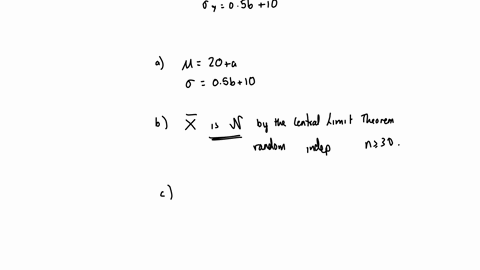 σy = 0.5b + 10
a) μ = 20 + a
σ = 0.5b + 10
b) X̄ is N by the Central Limit Theorem
random indep n ≥ 30.
c)